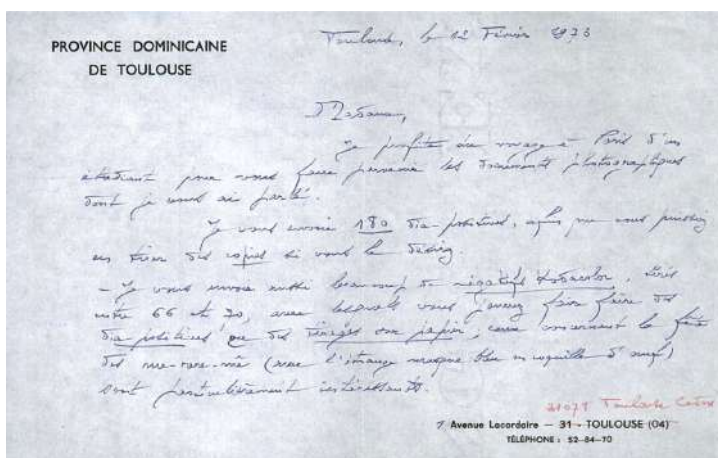 PROVINCE DOMINICAINE
DE TOULOUSE
Toulouse, le 12 Février 1973
Madame,
Je profite du voyage à Paris d'un
étudiant pour vous faire parvenir les documents photographiques
dont je vous ai parlé.
Je vous envoie 180 diapositives, afin que vous puissiez
en tirer des copies si vous le désirez.
- Je vous envoie aussi beaucoup de négatifs Kodacolor,
entre 66 et 70, avec lesquels vous pouvez faire faire des
diapositives ou des tirages sur papier; ceux concernant la fête
des (avec l'étrange masque bleu en coquille d'œuf)
sont particulièrement intéressants.
31079 Toulouse Cedex
7 Avenue Lacordaire — 31 - TOULOUSE (04)
TÉLÉPHONE : 52-84-70